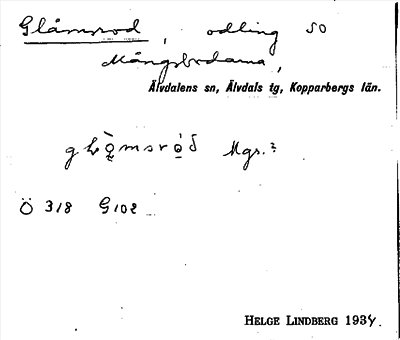 Glåmsrod, odling SO
Mångsbodarna,
Älvdalens sn, Älvdals tg, Kopparbergs län.
Mgs.?
Ö 318 G102
HELGE LINDBERG 1934.